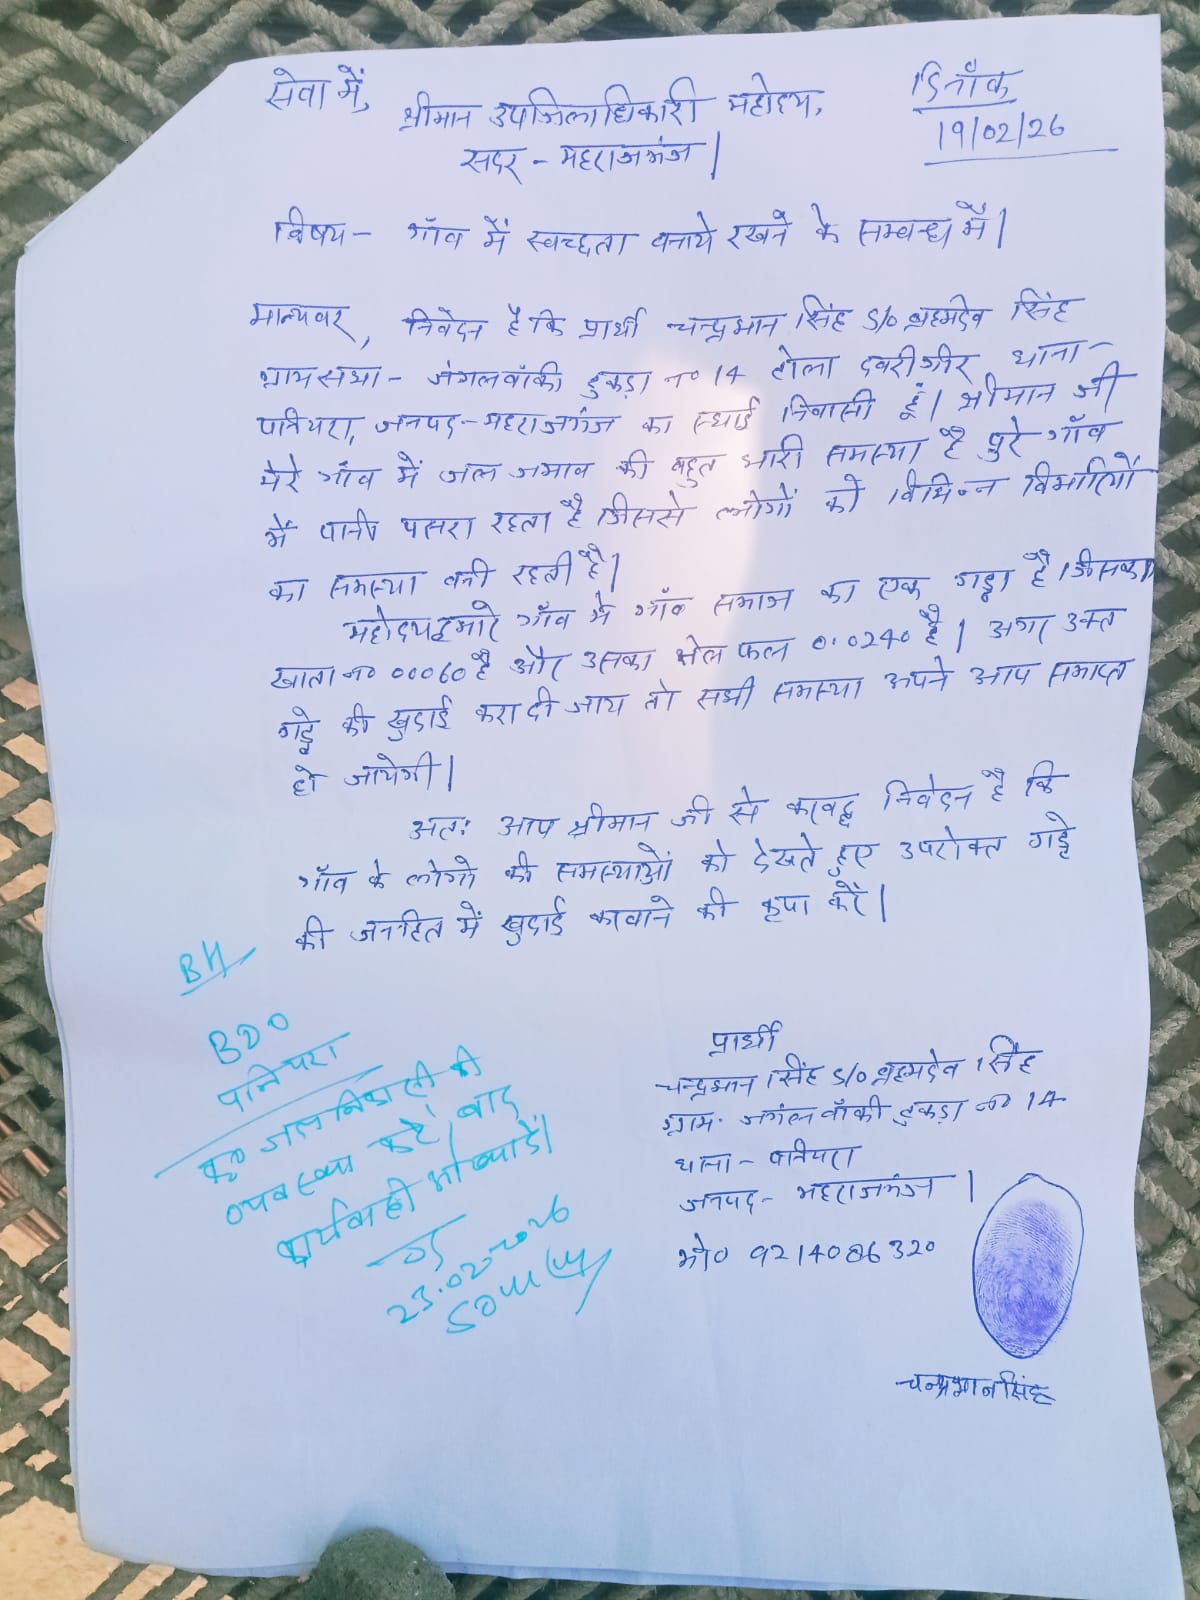 सेवा में,
दिनाँक
19/02/26
श्रीमान उपजिलाधिकारी महोदय,
सदर - महराजगंज।
विषय - गाँव में स्वच्छता बनाये रखने के सम्बन्ध में।
मान्यवर, निवेदन है कि प्रार्थी चन्द्रभान सिंह S/o ब्रह्मदेव सिंह
ग्रामसभा - जंगल बाँकी टुकड़ा न० 14 टोला थाना -
पनियरा, जनपद - महराजगंज का स्थाई निवासी हूं। श्रीमान जी
मेरे गाँव में जल जमाव की बहुत भारी समस्या है पुरे गाँव
में पानी पसरा रहता है जिससे लोगों को विभिन्न विमारियों
का समस्या बनी रहती है।
महोदय हमारे गाँव में गाँव समाज का एक गड्ढा है। जिसका
खाता न० 00060 है और उसका क्षेत्र फल 0.0240 है। अगर उक्त
गड्ढे की खुदाई करा दी जाय तो सभी समस्या अपने आप समाप्त
हो जायेगी।
अतः आप श्रीमान जी से करबद्ध निवेदन है कि
गाँव के लोगो की समस्याओं को देखते हुए उपरोक्त गड्ढे
की जनहित में खुदाई करवाने की कृपा करें।
BDO
पनियरा
कृ० जल निकासी की
व्यवस्था करें, बाद
कार्यवाही
23.02.2026
SDM
प्रार्थी
चन्द्रभान सिंह S/o ब्रह्मदेव सिंह
ग्राम - जगंल बाँकी टुकड़ा न० 14
थाना - पनियरा
जनपद - महराजगंज।
मो० 9214086320
चन्द्रभान सिंह